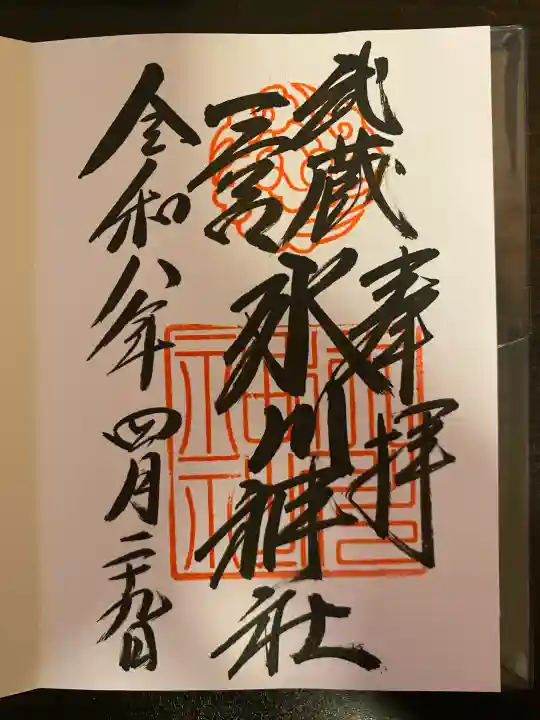 奉拝
武蔵
三宮
氷川神社
令和八年四月二十九日